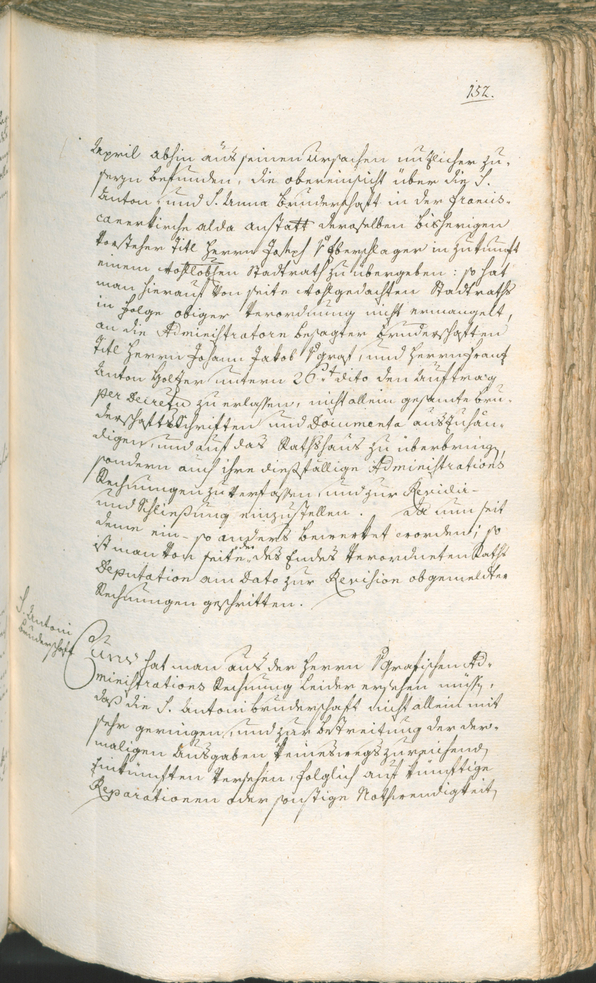 152.
April abhin aus seinen Ursachen nutzlicher zu
seyn befunden, die obereinsicht über die S.
Anton- und S. Anna Bruderschaft in der Francis-
canerkirche alda anstatt deroselben bisherigen
Vorsteher Titl Herrn Joseph in Zukunft
einem wohllobl: Stadtrath zu übergeben: so hat
man hierauf von seite wohlgedachten Stadtraths
in folge obiger Verordnung nicht ermanglet,
an die Administratorn besagter Bruderschaften
Titl Herrn Johann Jakob und Herrn Franz
Anton Holzer unterm 26t dito den Auftrag
per Decretum zu erlassen, nicht allein gesamte Bru-
derschafts Schriften und Documenta auszuhän-
digen, und auf das Rathshaus zu überbringen,
sondern auch ihre diesfällige Administrations
Rechnungen zu verfassen, und zur Revidir-
und Schließung einzustellen. Da nun seit
deme ein- so anders bewerket worden; so
ist man von seite der des Endes verordneten Raths
Deputation am Dato zur Revision obgemeldter
Rechnungen geschritten.
S. Antoni
Bruderschaft
Eines hat man aus der Herrn Ad-
ministrations Rechnung leider ersehen müssen,
daß die S. Antonibruderschaft nicht allein mit
sehr geringen, und zur bestreitung der der-
maligen Ausgaben keineswegs zureichend
Einkünften versehen, folglich auf künftige
Reparationen oder sonstige Nothwendigkeit